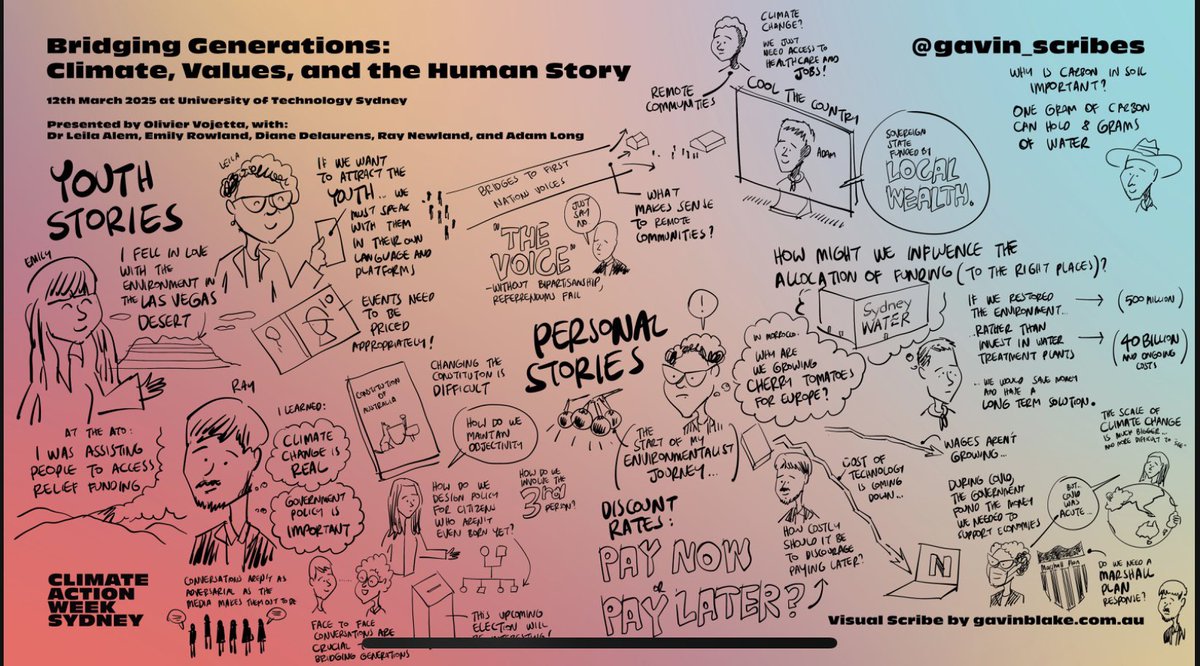 Bridging Generations:
Climate, Values, and the Human Story
12th March 2025 at University of Technology Sydney
Presented by Olivier Vojetta, with:
Dr Leila Alem, Emily Rowland, Diane Delaurens, Ray Newland, and Adam Long
@gavin_scribes
YOUTH
STORIES
LEILA
IF WE WANT
TO ATTRACT THE
YOUTH... WE
MUST SPEAK
WITH THEM
IN THEIR OWN
LANGUAGE AND
PLATFORMS
EVENTS NEED
TO BE
PRICED
APPROPRIATELY!
EMILY
I FELL IN LOVE
WITH THE
ENVIRONMENT IN
THE LAS VEGAS
DESERT
AT THE ATO:
I WAS ASSISTING
PEOPLE TO ACCESS
RELIEF FUNDING.
RAY
I LEARNED:
CLIMATE
CHANGE IS
REAL
GOVERNMENT
POLICY IS
IMPORTANT
CONVERSATIONS AREN'T AS
ADVERSARIAL AS THE
MEDIA MAKES THEM OUT TO BE
CLIMATE
ACTION
WEEK
SYDNEY
FACE TO FACE
CONVERSATIONS ARE
CRUCIAL TO
BRIDGING GENERATIONS
BRIDGES TO FIRST
NATION VOICES
"THE
VOICE"
JUST
SAY
NO
-WITHOUT BIPARTISANSHIP,
REFERENDUMS FAIL
WHAT
MAKES SENSE
TO REMOTE
COMMUNITIES?
REMOTE
COMMUNITIES
CLIMATE
CHANGE?
WE JUST
NEED ACCESS TO
HEALTHCARE AND
JOBS!
COOL THE COUNTRY
ADAM
SOVEREIGN
STATE
FUNDED BY
LOCAL
WEALTH.
WHY IS CARBON IN SOIL
IMPORTANT?
ONE GRAM OF CARBON
CAN HOLD 8 GRAMS
OF WATER
CHANGING THE
CONSTITUTION IS
DIFFICULT
CONSTITUTION
OF
AUSTRALIA
HOW DO WE
MAINTAIN
OBJECTIVITY
HOW DO WE
DESIGN POLICY
FOR CITIZENS
WHO AREN'T
EVEN BORN YET?
HOW DO WE
INVOLVE THE
3rd
PERSON?
THIS UPCOMING
ELECTION WILL
PERSONAL
STORIES
!
THE
START OF MY
ENVIRONMENTALIST
JOURNEY...
IN MOROCCO:
WHY ARE
WE GROWING
CHERRY TOMATOES
FOR EUROPE?
DISCOUNT
RATES:
PAY NOW
OR
PAY LATER?
HOW COSTLY
SHOULD IT BE
TO DISCOURAGE
PAYING LATER?
HOW MIGHT WE INFLUENCE THE
ALLOCATION OF FUNDING (TO THE RIGHT PLACES)?
Sydney
WATER
IF WE RESTORED
THE ENVIRONMENT...
(500 MILLION)
...RATHER THAN
INVEST IN WATER
TREATMENT PLANTS
(40 BILLION
AND ONGOING
COSTS)
...WE WOULD SAVE MONEY
AND HAVE A
LONG TERM SOLUTION.
COST OF
TECHNOLOGY
IS COMING
DOWN...
N
WAGES AREN'T
GROWING...
DURING COVID,
THE GOVERNMENT
FOUND THE MONEY
WE NEEDED TO
SUPPORT ECONOMIES
BUT
COVID
WAS
ACUTE...
THE SCALE OF
CLIMATE CHANGE
IS MUCH BIGGER...
AND MORE DIFFICULT TO "SEE"
Marshall Plan
DO WE NEED A
MARSHALL
PLAN
RESPONSE?
Visual Scribe by gavinblake.com.au